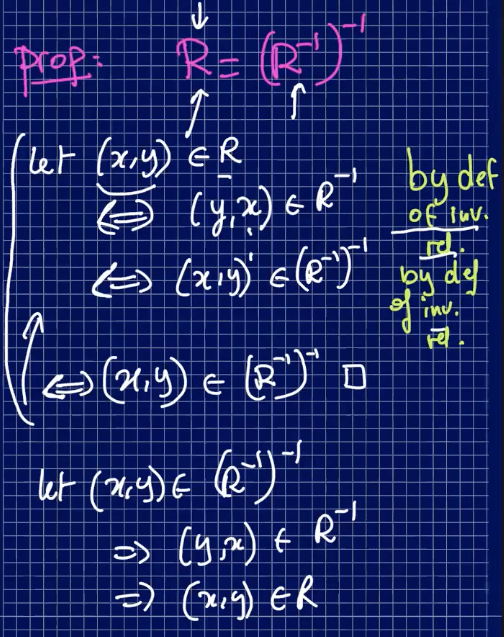 prop: R = (R⁻¹)⁻¹
let (x,y) ∈ R
⟺ (y,x) ∈ R⁻¹
by def
of inv.
rel.
⟺ (x,y) ∈ (R⁻¹)⁻¹
by def
of inv.
rel.
⟺ (x,y) ∈ (R⁻¹)⁻¹ □
let (x,y) ∈ (R⁻¹)⁻¹
⇒ (y,x) ∈ R⁻¹
⇒ (x,y) ∈ R